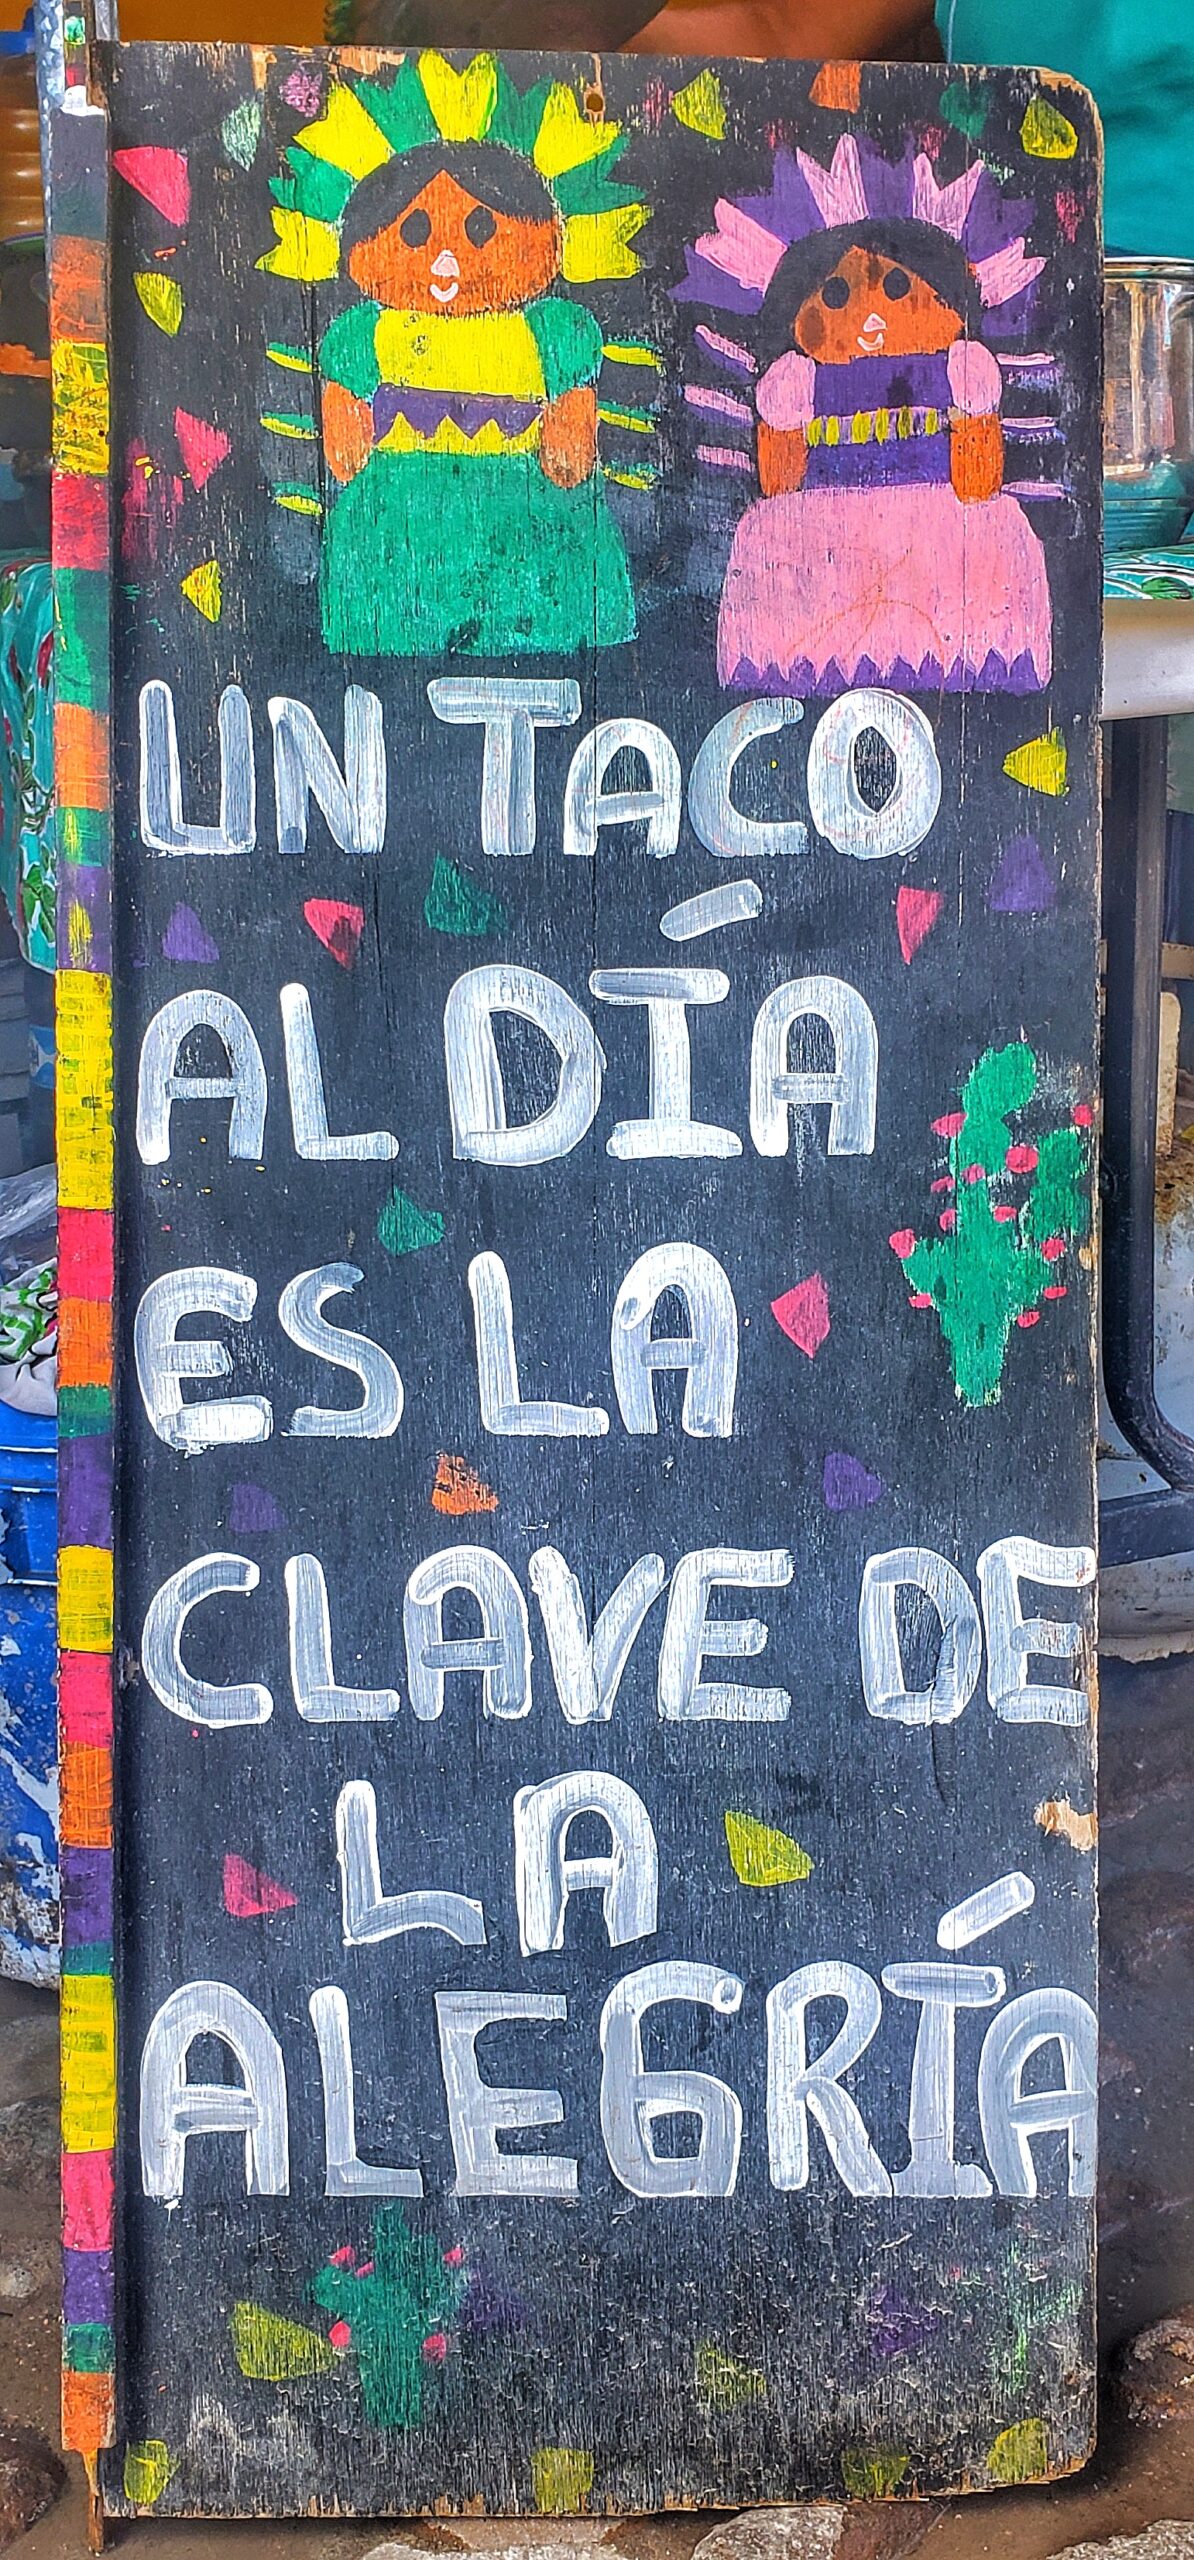 UN TACO
AL DÍA
ES LA
CLAVE DE
LA
ALEGRÍA